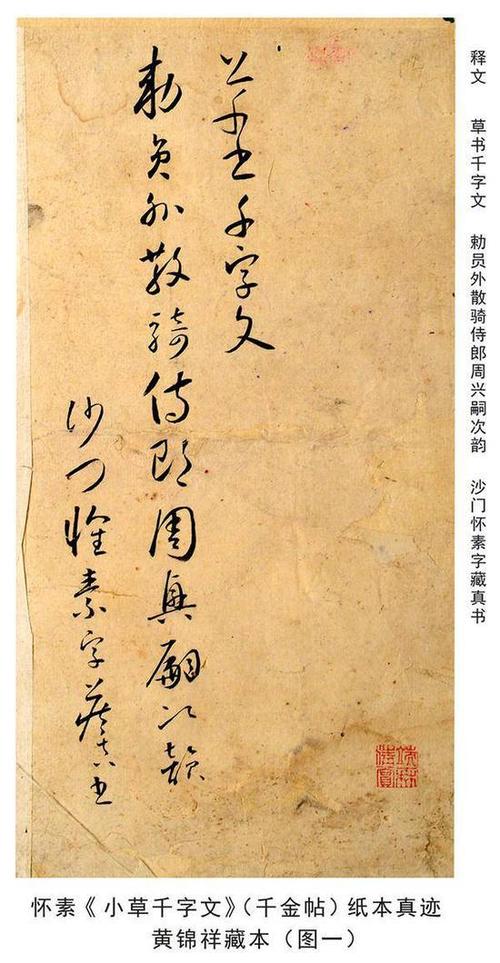 草书千字文
勅员外散骑侍郎周兴嗣次韵
沙门怀素字藏真书
释文 草书千字文 勅员外散骑侍郎周兴嗣次韵 沙门怀素字藏真书
怀素《小草千字文》（千金帖）纸本真迹
黄锦祥藏本（图一）